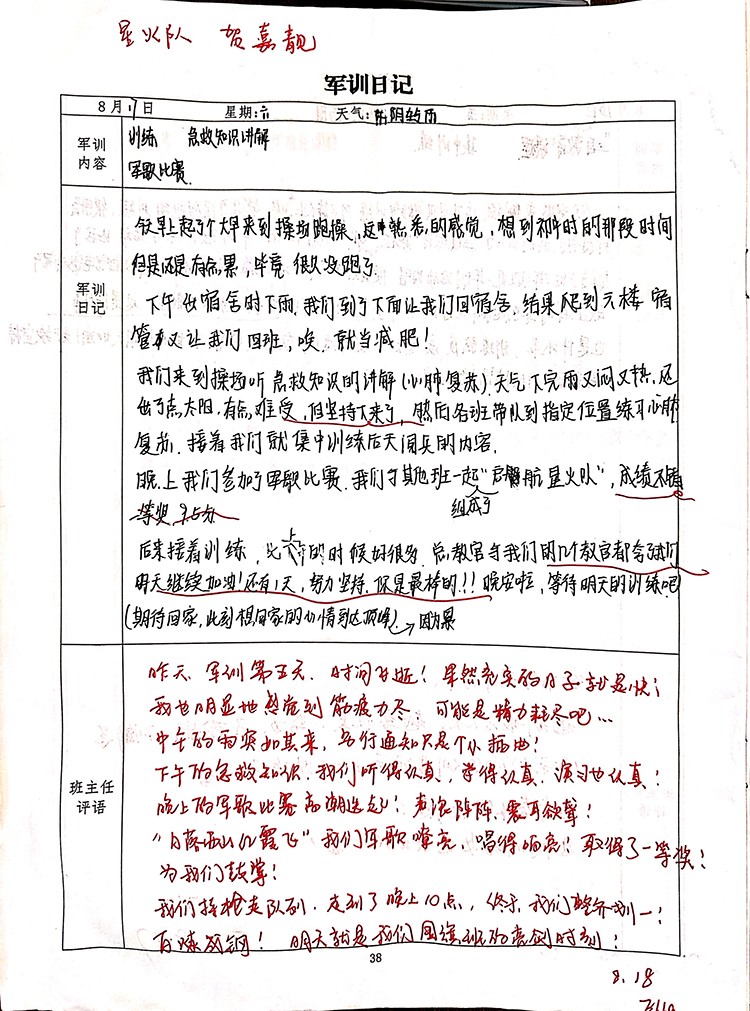 星火队 贺嘉靓
军训日记
8月17日 星期:六 天气:阴转雨
军训内容
训练 急救知识讲解
军歌比赛
军训日记
今早上起了个大早来到操场跑操,这熟悉的感觉,想到初中时的那段时间
但是还是有点累,毕竟很久没跑了
下午出宿舍时下雨,我们到了下面让我们回宿舍,结果爬到六楼宿
管又让我们回班,唉,就当减肥!
我们来到操场听急救知识的讲解(心肺复苏)天气下完雨又闷又热,还
出了点太阳,有点难受,但坚持下来了,然后各班带队到指定位置练习心肺
复苏.接着我们就集中训练后天阅兵的内容.
晚上我们参加了军歌比赛.我们与其他班一起“启航星火队”,成绩不错
组成了
一等奖 9.5分
后来接着训练,比上午的时候好很多.总教官与我们的几个教官都夸了我们
明天继续加油!还有1天,努力坚持.你是最棒的!!!晚安啦,等待明天的训练吧
(期待回家,此刻想回家的心情到达顶峰)→因为累
班主任评语
昨天,军训第五天,时间飞逝!果然充实的日子就是快!
我也明显地感觉到筋疲力尽,可能是精力耗尽吧...
中午的雨突如其来,另行通知只是个小插曲!
下午的急救知识,我们听得认真,学得认真,演习也认真!
晚上的军歌比赛高潮迭起!声浪阵阵,震耳欲聋!
“日落西山红霞飞”我们军歌嘹亮,唱得响亮!取得了一等奖!
为我们鼓掌!
我们接抢走队列.走到了晚上10点,终于,我们整齐划一!
百炼成钢!明天就是我们国旗班的亮剑时刻!
38
8.18